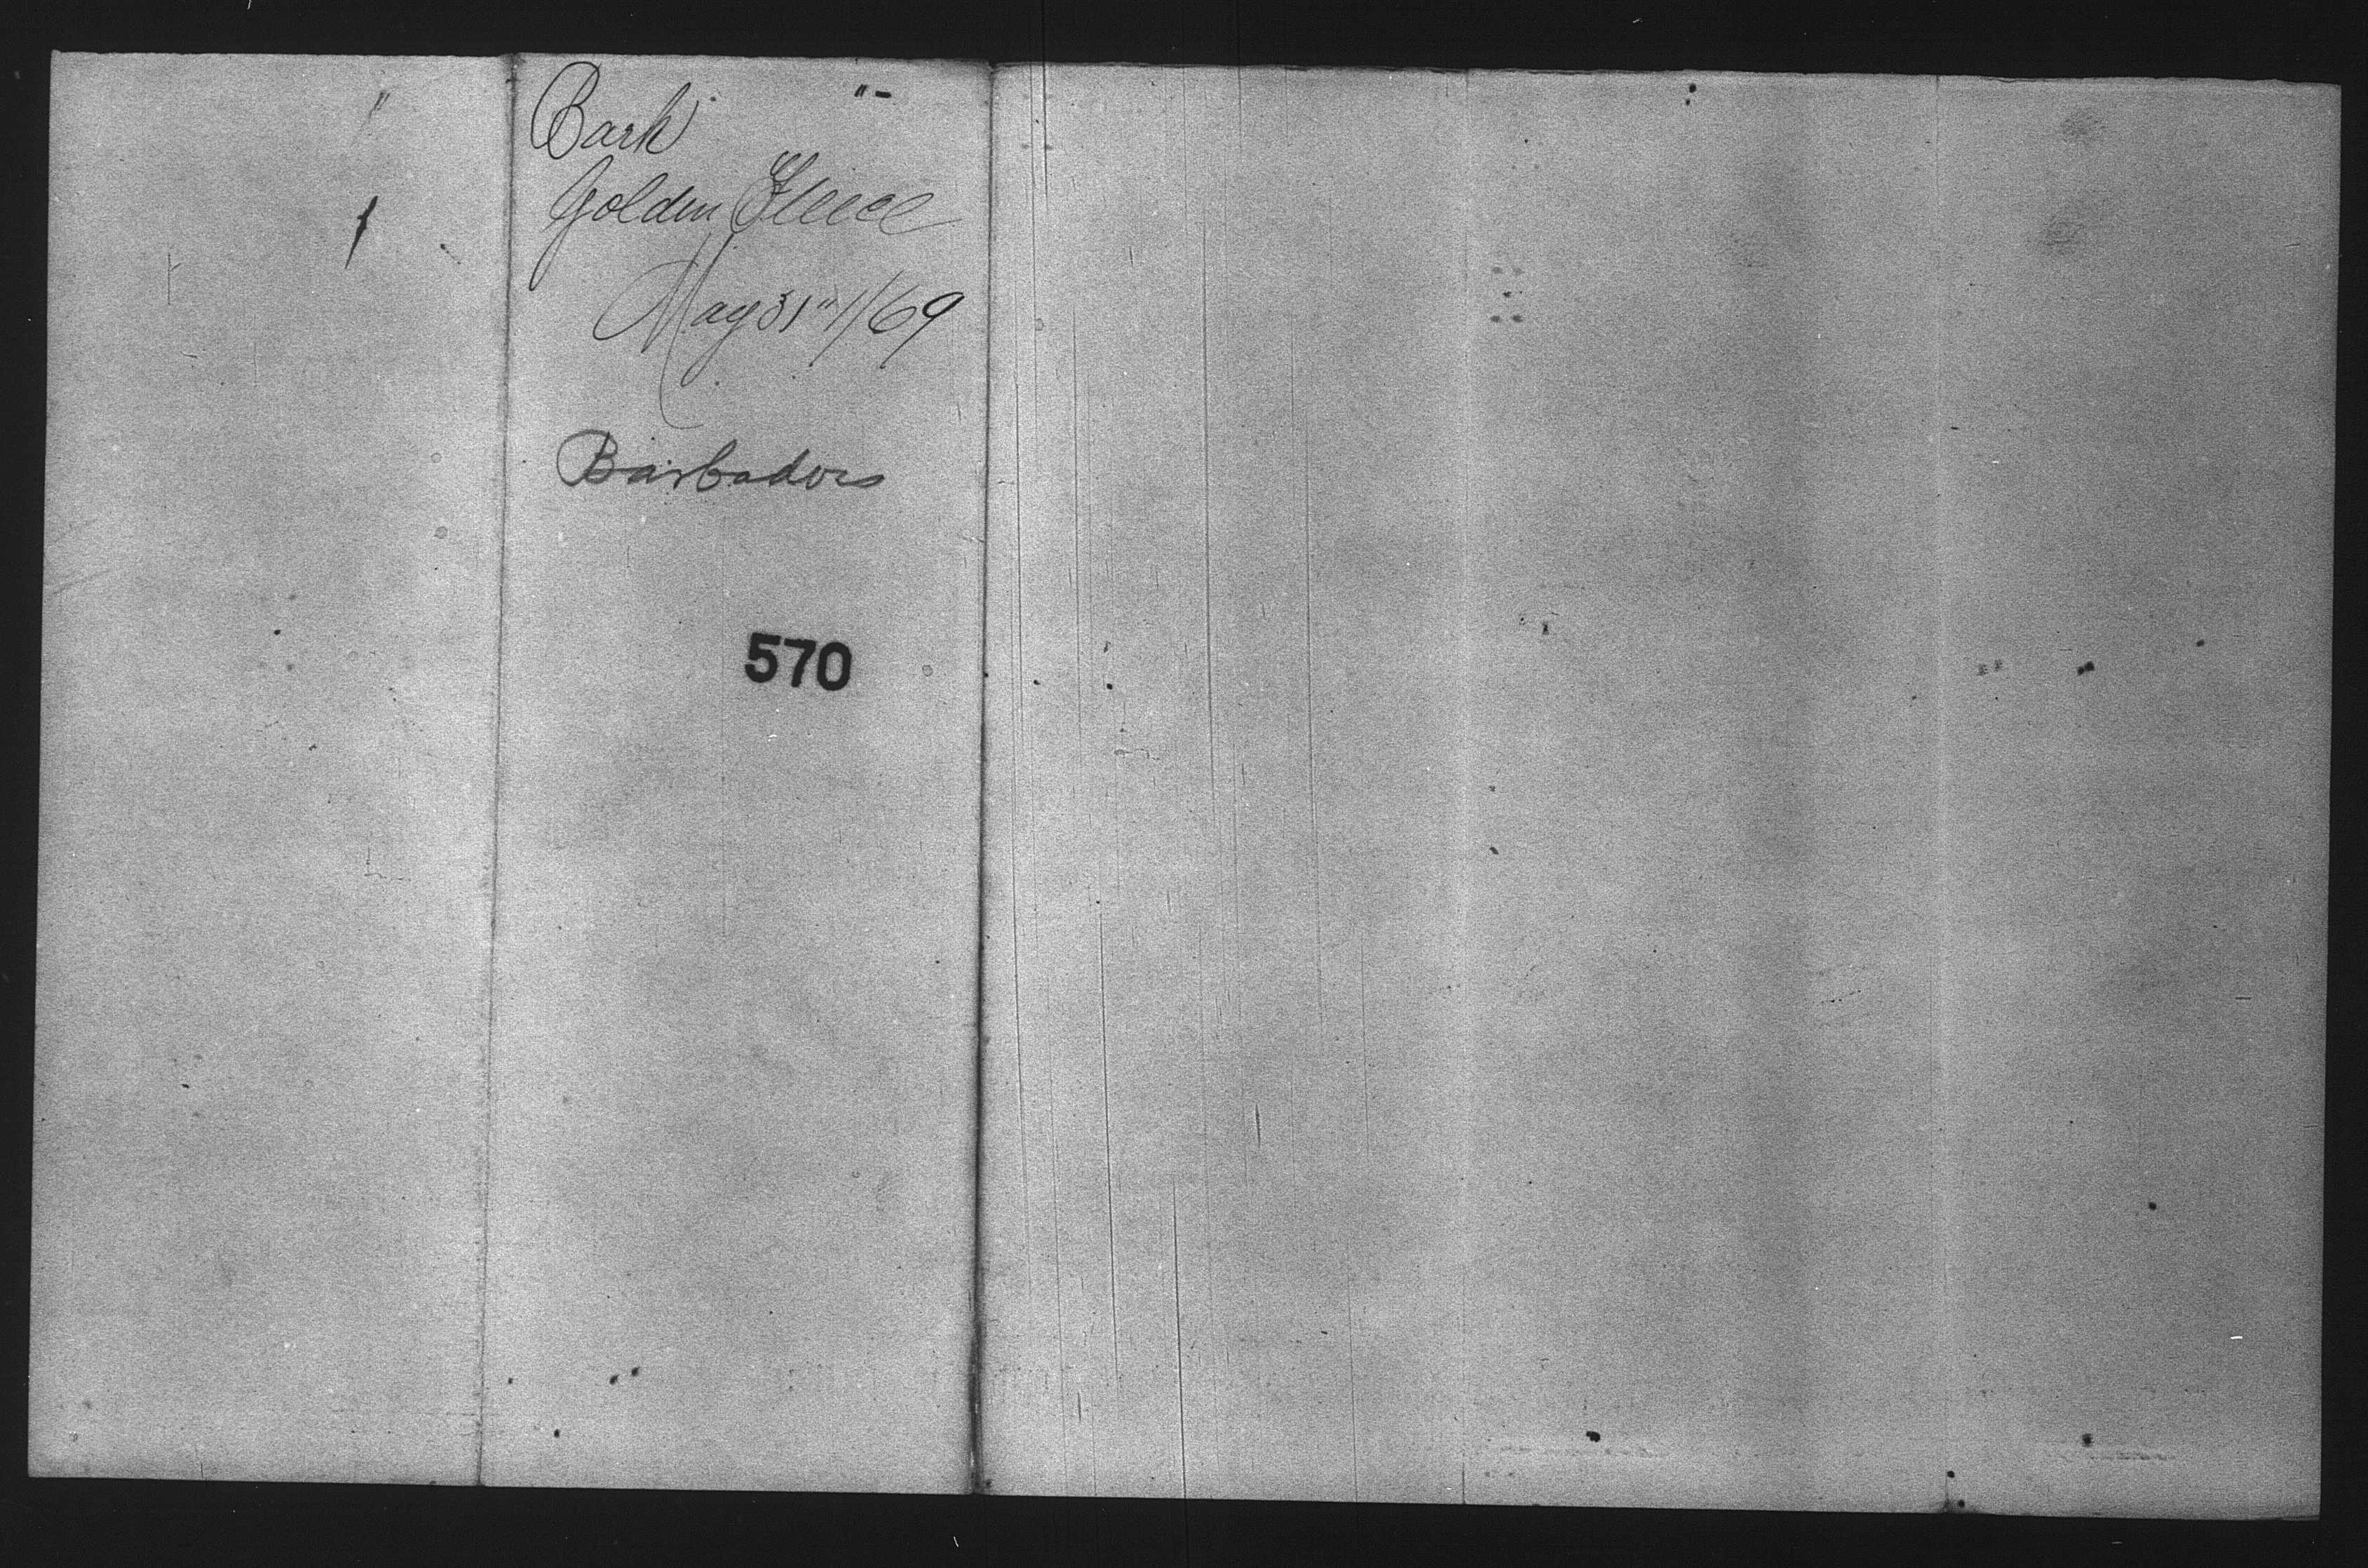 Bark
Golden Fleece
May 31" 1/69
Barbadors
570